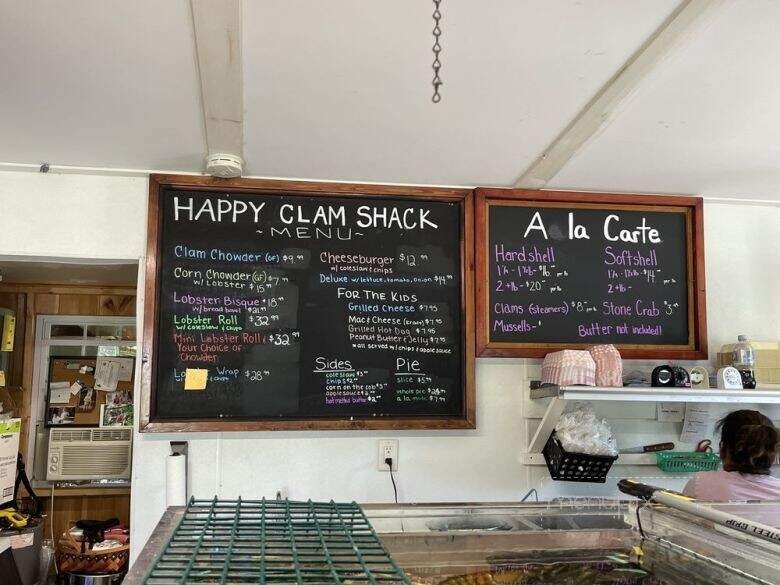 HAPPY CLAM SHACK
~ MENU ~
Clam Chowder (GF) $9.99
Corn Chowder (GF) $7.99
w/ Lobster $15.99
Lobster Bisque $18.99
w/ bread bowl $21.99
Lobster Roll $32.99
w/ coleslaw & chips
Mini Lobster Roll & $32.99
Your Choice of
Chowder
Wrap $28.99
Cheeseburger $12.99
w/ coleslaw & chips
Deluxe w/ lettuce, tomato, onion $14.99
FOR THE KIDS
Grilled Cheese $7.95
Mac & Cheese (Kraft) $7.95
Grilled Hot Dog $7.95
Peanut Butter & Jelly $7.95
all served w/ chips & apple sauce
Sides
coleslaw
chips
corn on the cob
applesauce
hot melted butter
Pie
slice $5.99
whole pie
a la mode $7.99
A la Carte
Hardshell
per lb
2 + lb - $20.
Softshell
2 + lb -
Clams (Steamers) $8.
Mussels -
Stone Crab
Butter not included!
STEEL GRIP